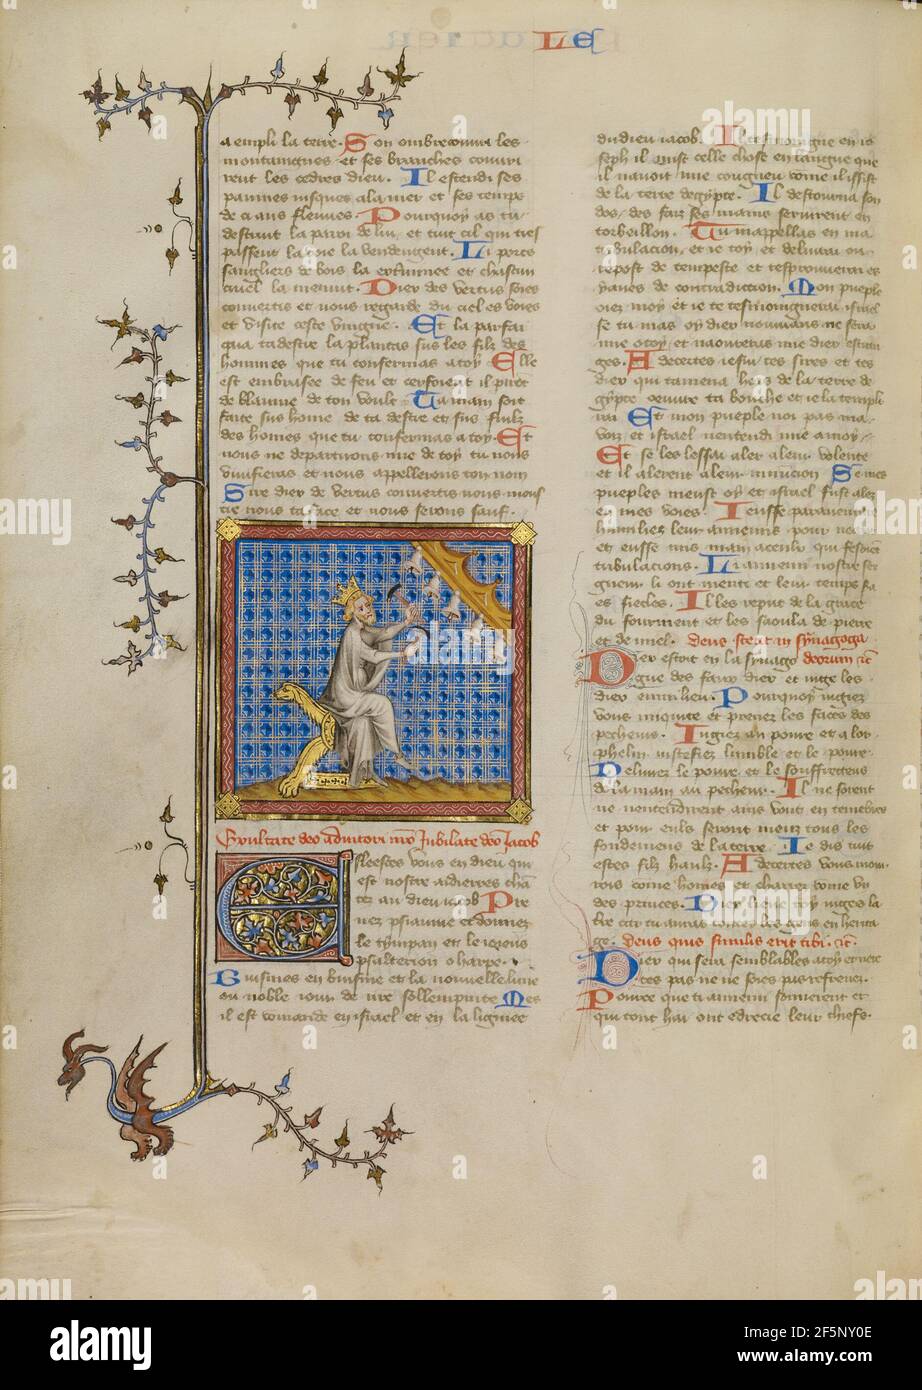 LE
a empli la terre. Son ombre couvri les
montaingnes et ses branches couvri
rent les cedres dieu. Il estendi ses
paumes jusques a la mer et ses
de ci aus fleuves. Pourquoy as tu
destruit la paroi de lui, et tuit cil qui tres
passent la voie la vendengent. Li pors
sangliers de bois la et chascun
Dieu des vertus soies
convertis et nous regarde du ciel et voies
et visite ceste vingne. Et la parfai
que ta destre la planta sus les filz des
hommes que tu confermas a toy. Elle
est embrasee de feu et
de blasme de ton voult. Ta main soit
faite sus home de ta destre et sus filz
des homes que tu confermas a toy. Et
nous ne departirons mie de toy tu nous
vivifieras et nous appellerons ton nom
Sire dieu de vertus convertis nous mous
tre nous ta face et nous serons sauf.
Exultate deo adiutori nro Jubilate deo Jacob
Esleesces vous en dieu qui
est nostre aidierres chan
tez au dieu iacob. Pre
nez psiaume et donnez
le tympan et le
psalterion o harpe.
Buisines en buisine et la nouvelle lune
ou noble iour de vre sollempnite. Mes
il est comande en israel et en la lignee
du dieu iacob. Il en io
seph il mist celle chose en langue que
il navoit mie congneu come il issist
de la terre degypte. Il destourna son
dos des faiz ses mains servirent en
corbeillon. Tu mappellas en ma
tribulacion, et ie toy et delivrai ou
repost de tempeste et
yaues de contradiction. Mon pueple
oiez moy et ie te tesmoignerai israel
se tu mas oy dieu nouviaus ne sera
mie o toy et naoureras mie dieu estran
ges. A decertes ie sui tes sires et tes
dieu qui tamena hors de la terre de
gypte oeuvre ta bouche et ie la templi
rai. Et mon pueple noi pas ma
voiz et israel nentendi mie a moy.
Et se les lessai aler a leur volente
et il alerent a leur Se mes
pueples meust oy et israel fust alez
en mes voies. Ieusse paraventure
humiliez leur annemis pour neent
et eusse mis main a ceulz qui fesoient
tribulacions. Li annemi nostre sei
gneur li ont menti et leur temps
es siecles. Il les reput de la gresse
du fourment et les saoula de pierre
et de miel. Deus stetit in synagoga
Dieu estoit en la synago deorum
gue des faux dieu et iuge les
dieu en milieu. Pourquoy iugiez
vous iniquite et prenez les faces des
pecheurs. Iugiez au povre et a lor
phelin iustefiez lumble et le povre.
Delivrez le povre et le souffreteus
de la main au pecheur. Il ne sorent
ne nentendirent ains vont en tenebres
et pour eulz seront meuz tous les
fondemens de la terre. Ie dis tuit
estes filz haulz. A decertes vous mou
rois come homes et charrez come un
des princes. Dieu lieve toy iuges la
tre car tu auras toutes les gens en herita
ge. Deus quis similis erit tibi
Dieu qui sera semblables a toy
tes pas ne ne soies pas refrenez.
Pource que ti annemi sonnerent et
qui tont hai ont edrecie leur chiefs.
alamy
a
Image ID: 2F5NY0E
www.alamy.com